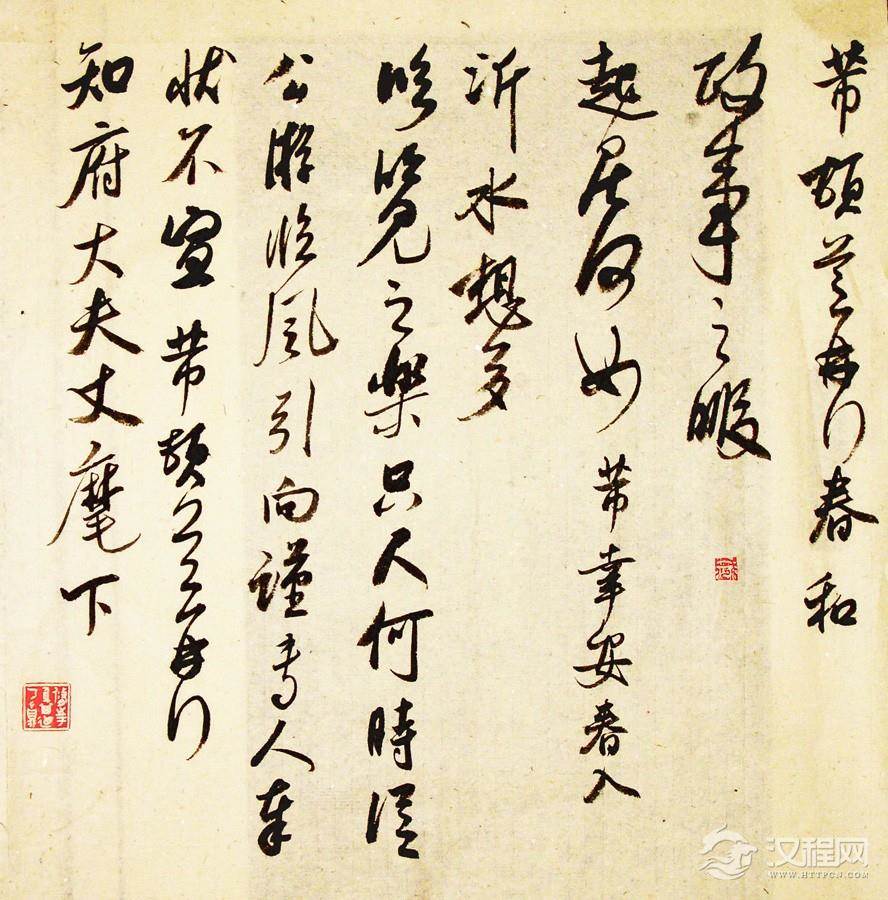 芾頓首再拜春和
政事之暇
起居何如芾幸安春入
沂水想多
臨覽之樂只人何時從
公游臨風引向謹專人奉
狀不宣芾頓首再拜
知府大夫丈麾下
汉程网
WWW.HTTPCN.COM